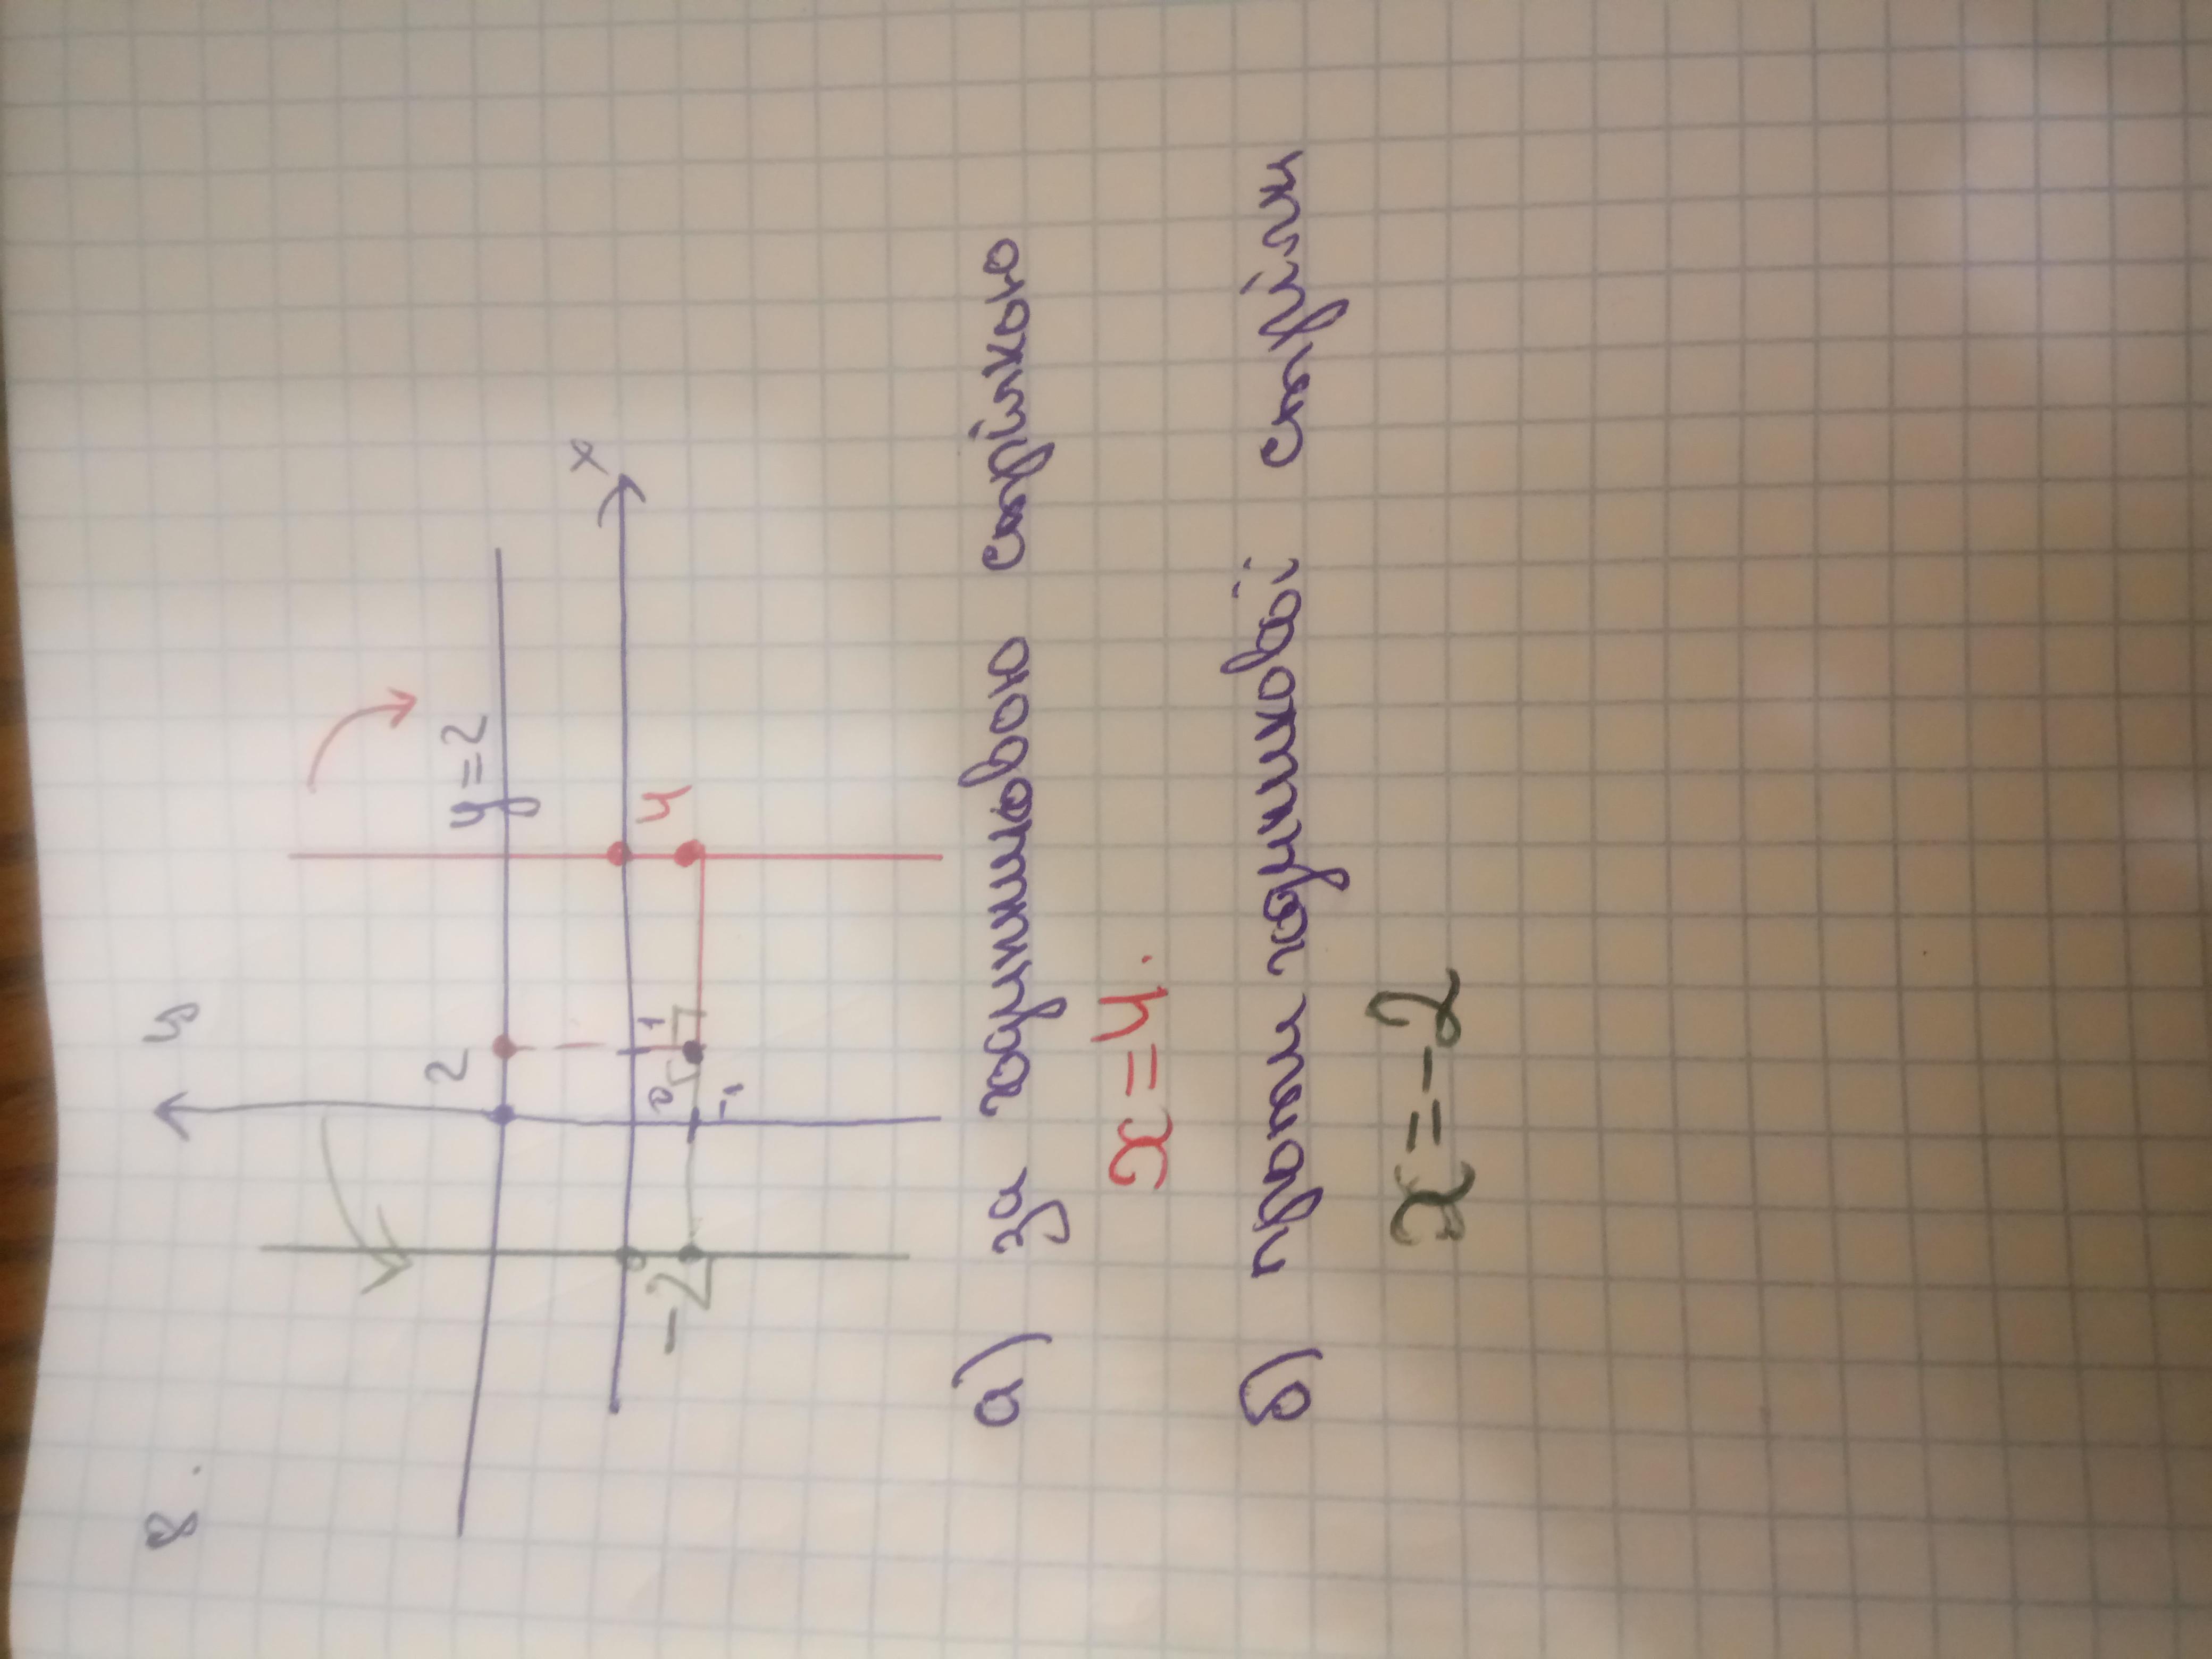 8.
y
2
y=2
x
0
1
4
-2
-1
а) за годинниковою стрілкою
x=4.
б) проти годинникової стрілки
x=-2